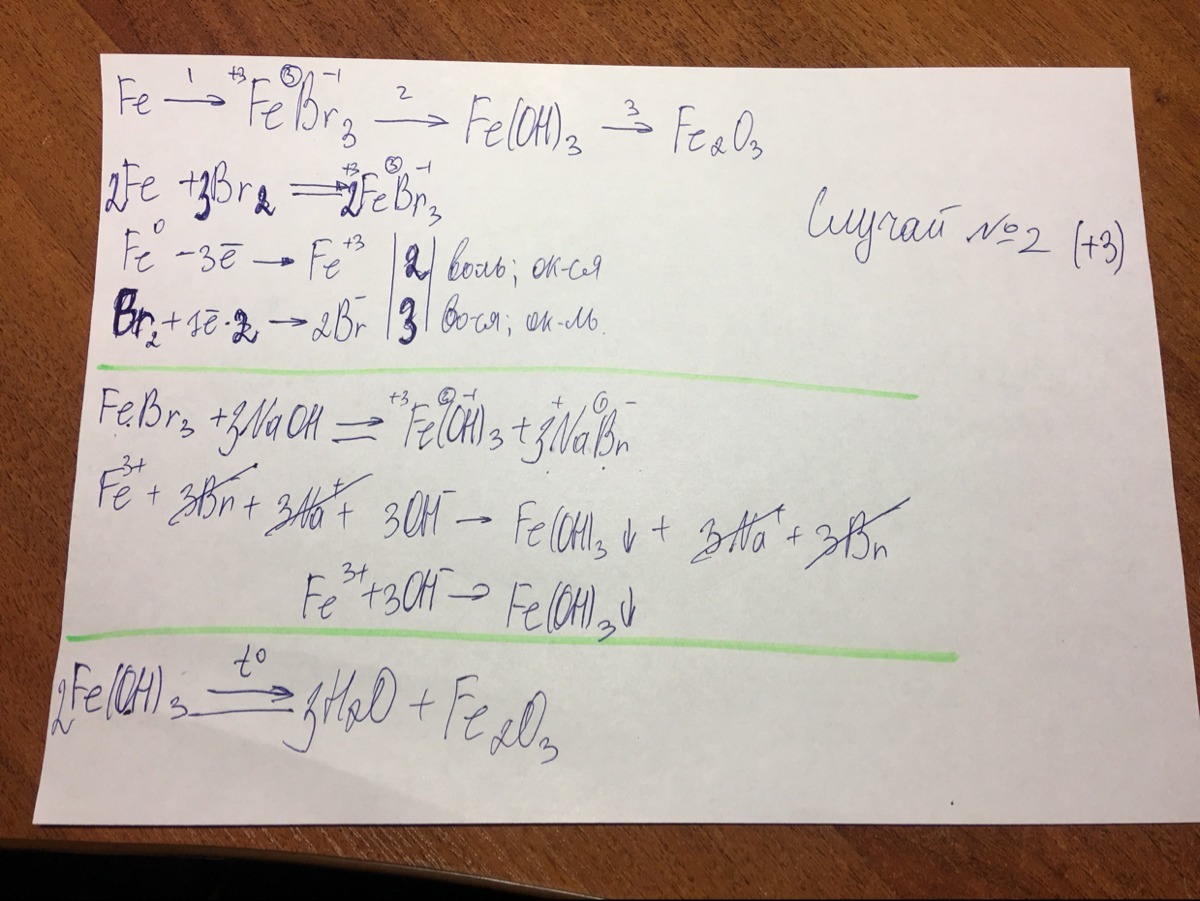 Fe —1→ ⁺³Fe③Br₃⁻¹ —2→ Fe(OH)₃ —3→ Fe₂O₃
2Fe + 3Br₂ ⟹ 2⁺³Fe③Br₃⁻¹
Случай №2 (+3)
Fe⁰ - 3ē → Fe⁺³ | 2 | восль; ок-ся
Br₂ + 1ē·2 → 2Br⁻ | 3 | вос-ся; ок-ль
FeBr₃ + 3NaOH ⇒ ⁺³Fe(OH)₃⁻¹ + 3Na⁺①Br⁻
Fe³⁺ + 3Br⁻ + 3Na⁺ + 3OH⁻ → Fe(OH)₃↓ + 3Na⁺ + 3Br⁻
Fe³⁺ + 3OH⁻ → Fe(OH)₃↓
2Fe(OH)₃ =t°⇒ 3H₂O + Fe₂O₃